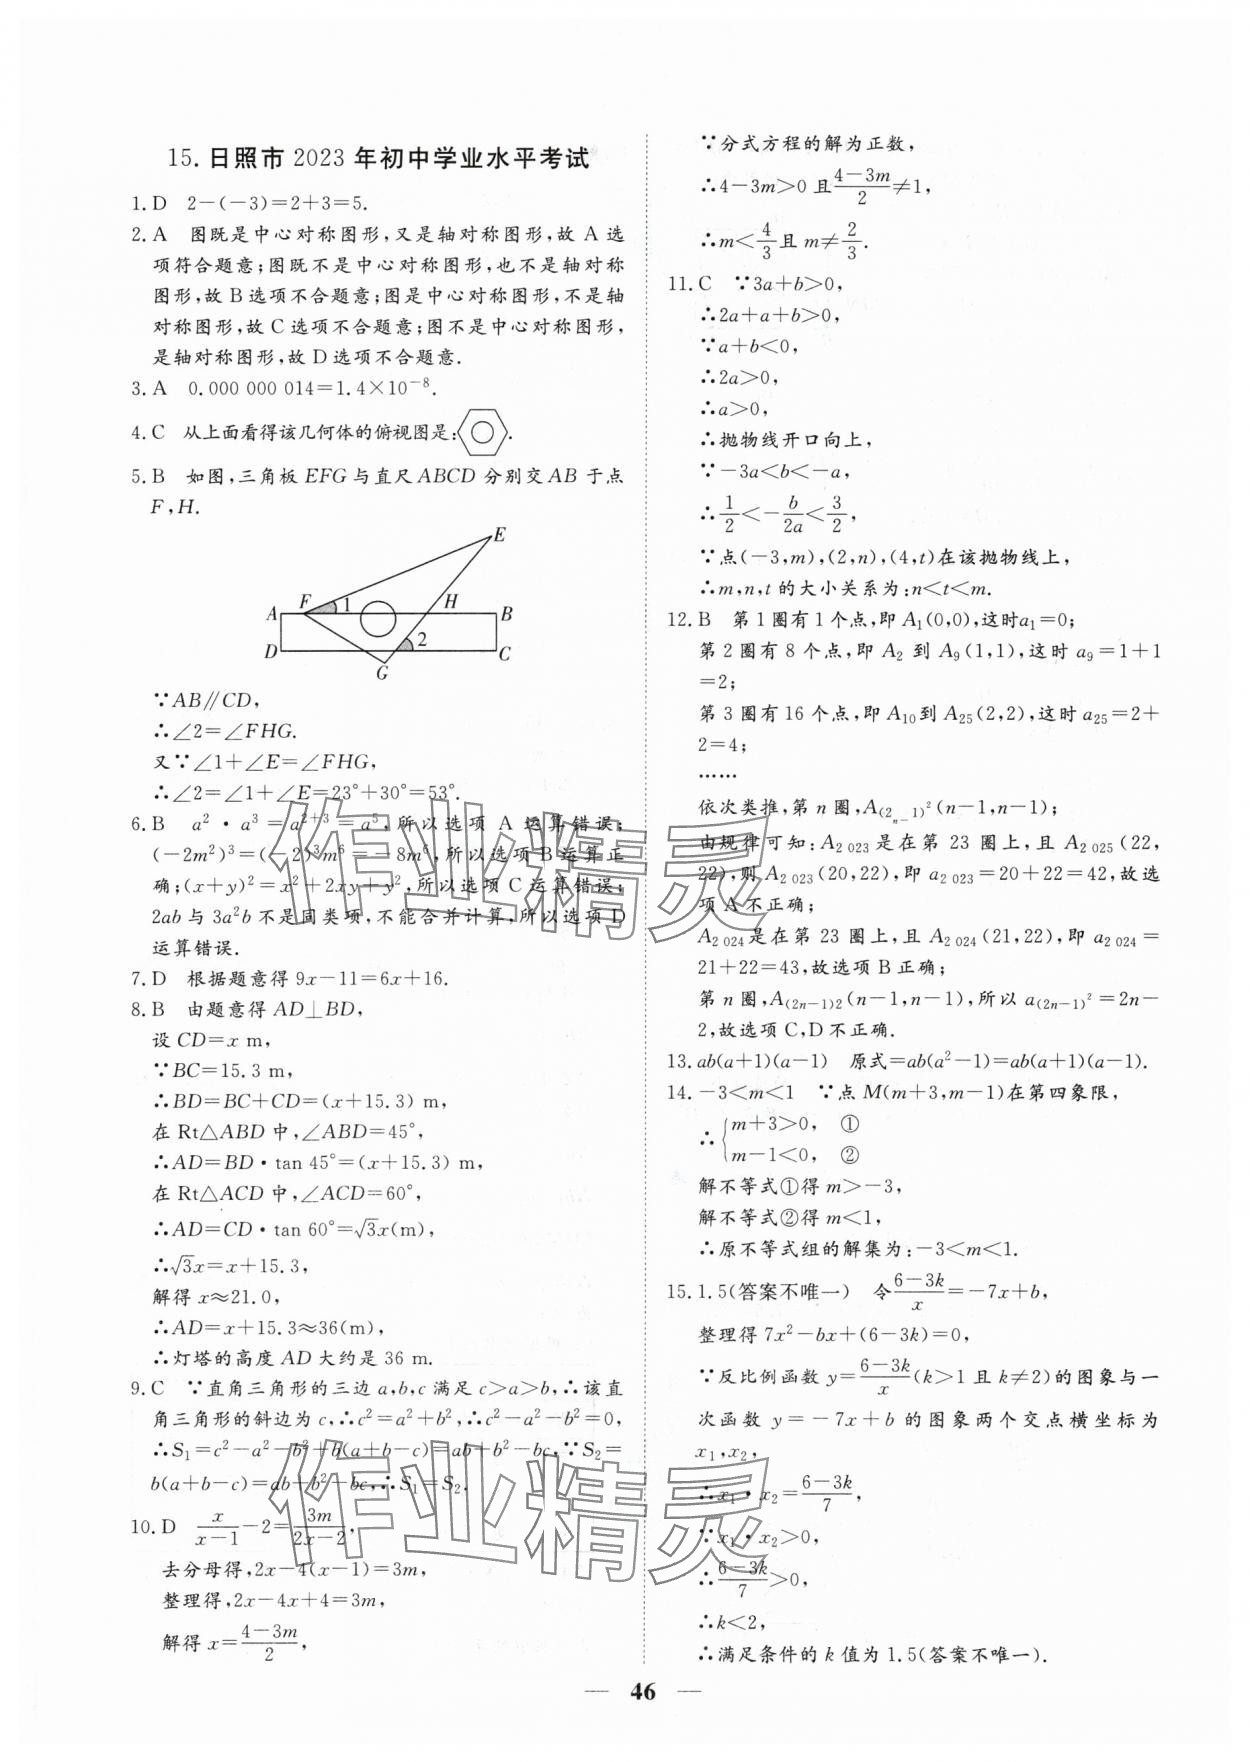 15. 日照市 2023 年初中学业水平考试
1. D 2-(-3)=2+3=5.
2. A 图既是中心对称图形,又是轴对称图形,故 A 选
项符合题意;图既不是中心对称图形,也不是轴对称
图形,故 B 选项不合题意;图是中心对称图形,不是轴
对称图形,故 C 选项不合题意;图不是中心对称图形,
是轴对称图形,故 D 选项不合题意.
3. A 0.000 000 014=1.4×10⁻⁸.
4. C 从上面看得该几何体的俯视图是:.
5. B 如图,三角板 EFG 与直尺 ABCD 分别交 AB 于点
F,H.
E
A F 1 H B
D 2 C
G
∵AB∥CD,
∴∠2=∠FHG.
又∵∠1+∠E=∠FHG,
∴∠2=∠1+∠E=23°+30°=53°.
6. B a²·a³=a²⁺³=a⁵,所以选项 A 运算错误;
(-2m²)³=(-2)³m⁶=-8m⁶,所以选项 B 运算正
确;(x+y)²=x²+2xy+y²,所以选项 C 运算错误;
2ab 与 3a²b 不是同类项,不能合并计算,所以选项 D
运算错误.
7. D 根据题意得 9x-11=6x+16.
8. B 由题意得 AD⊥BD,
设 CD=x m,
∵BC=15.3 m,
∴BD=BC+CD=(x+15.3) m,
在 Rt△ABD 中,∠ABD=45°,
∴AD=BD·tan 45°=(x+15.3) m,
在 Rt△ACD 中,∠ACD=60°,
∴AD=CD·tan 60°=√3x(m),
∴√3x=x+15.3,
解得 x≈21.0,
∴AD=x+15.3≈36(m),
∴灯塔的高度 AD 大约是 36 m.
9. C ∵直角三角形的三边 a,b,c 满足 c>a>b,∴该直
角三角形的斜边为 c,∴c²=a²+b²,∴c²-a²-b²=0,
∴S₁=c²-a²-b²+b(a+b-c)=ab+b²-bc,∵S₂=
b(a+b-c)=ab+b²-bc,∴S₁=S₂.
10. D x/(x-1)-2=3m/(2x-2),
去分母得,2x-4(x-1)=3m,
整理得,2x-4x+4=3m,
解得 x=(4-3m)/2,
∵分式方程的解为正数,
∴4-3m>0 且(4-3m)/2≠1,
∴m<4/3且 m≠2/3.
11. C ∵3a+b>0,
∴2a+a+b>0,
∵a+b<0,
∴2a>0,
∴a>0,
∴抛物线开口向上,
∵-3a<b<-a,
∴1/2<-b/2a<3/2,
∵点(-3,m),(2,n),(4,t)在该抛物线上,
∴m,n,t 的大小关系为:n<t<m.
12. B 第 1 圈有 1 个点,即 A₁(0,0),这时a₁=0;
第 2 圈有 8 个点,即 A₂ 到 A₉(1,1),这时 a₉=1+1
=2;
第 3 圈有 16 个点,即 A₁₀到 A₂₅(2,2),这时 a₂₅=2+
2=4;
……
依次类推,第 n 圈,A(2n-1)²(n-1,n-1);
由规律可知:A₂ ₀₂₃是在第 23 圈上,且 A₂ ₀₂₅(22,
22),则 A₂ ₀₂₃(20,22),即 a₂ ₀₂₃=20+22=42,故选
项 A 不正确;
A₂ ₀₂₄是在第 23 圈上,且 A₂ ₀₂₄(21,22),即 a₂ ₀₂₄=
21+22=43,故选项 B 正确;
第 n 圈,A(2n-1)2(n-1,n-1),所以 a(2n-1)²=2n-
2,故选项 C,D 不正确.
13. ab(a+1)(a-1) 原式=ab(a²-1)=ab(a+1)(a-1).
14. -3<m<1 ∵点 M(m+3,m-1)在第四象限,
∴{m+3>0, ①
m-1<0, ②
解不等式①得 m>-3,
解不等式②得 m<1,
∴原不等式组的解集为:-3<m<1.
15. 1.5(答案不唯一) 令(6-3k)/x=-7x+b,
整理得 7x²-bx+(6-3k)=0,
∵反比例函数 y=(6-3k)/x(k>1 且 k≠2)的图象与一
次函数 y=-7x+b 的图象两个交点横坐标为
x₁,x₂,
∴x₁·x₂=(6-3k)/7,
∵x₁·x₂>0,
∴(6-3k)/7>0,
∴k<2,
∴满足条件的 k 值为 1.5(答案不唯一).
— 46 —
作业精灵
作业精灵